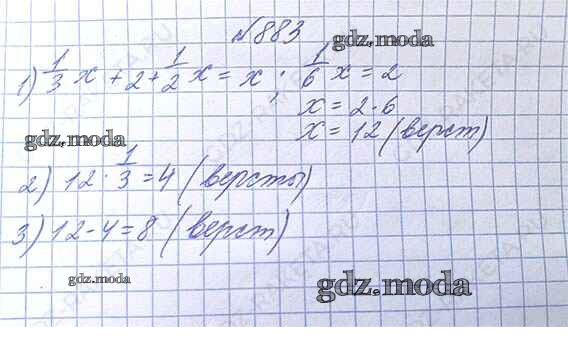 №883
gdz.moda
1) 1/3 x + 2 + 1/2 x = x; 1/6 x = 2
x = 2·6
x = 12 (верст)
gdz.moda
2) 12 · 1/3 = 4 (версты)
3) 12 - 4 = 8 (верст)
gdz.moda
gdz.moda